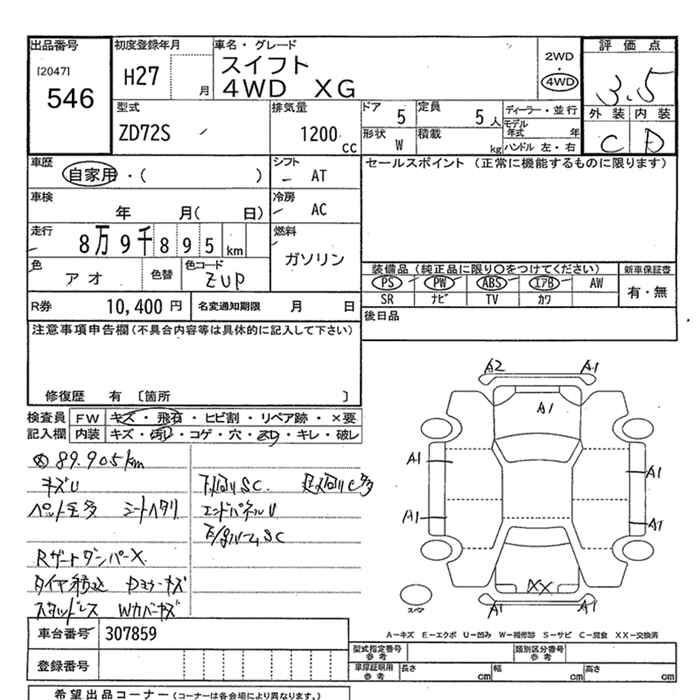 出品番号 初度登録年月 車名・グレード 2WD・4WD 評価点
[2047]
546
H27 月
スイフト
4WD XG
3.5
外装 内装
C D
型式 排気量 ドア 定員 ディーラー・並行
ZD72S 1200CC 5 5人
モデル年式 年
形状 積載 ハンドル 左・右
W kg
車歴 シフト セールスポイント (正常に機能するものに限ります)
自家用・( ) AT
車検 冷房
年 月( 日) AC
走行 燃料
8万9千895km ガソリン
色 色替 色コード
アオ ZUP
装備品(純正品に限り○をつけてください) 新車保証書
PS PW ABS エアB AW 有・無
SR ナビ TV カワ
R券 10,400円 名変通知期限 月 日
後日品
注意事項申告欄(不具合内容等は具体的に記入して下さい)
修復歴 有 〔箇所 〕
検査員記入欄
FW キズ・飛石・ヒビ割・リペア跡・×要
内装 キズ・汚レ・コゲ・穴・スレ・キレ・破レ
89.905km
キズU
ペット毛多 シートヘタリ
下回りSC.
エンドパネルU
Rゲートダンパー×
スタッドレス Wカバーキズ
A2 A1
A1
A1 A1
A1 A1
XX
A1 A1
スペア
A-キズ E-エクボ U-凹み W-補修跡 S-サビ C-腐食 XX-交換済
車台番号 307859
型式指定番号 参考 類別区分番号 参考
登録番号
車庫証明用 参考 長さ cm 幅 cm 高さ cm
希望出品コーナー(コーナーは各会場により異なります。)